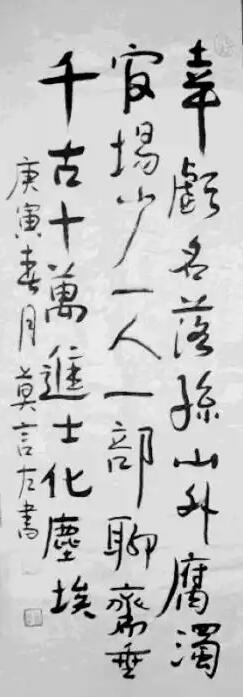 幸虧名落孫山外腐濁
官場少一人一部聊齋垂
千古十萬進士化塵埃
庚寅春月莫言左書